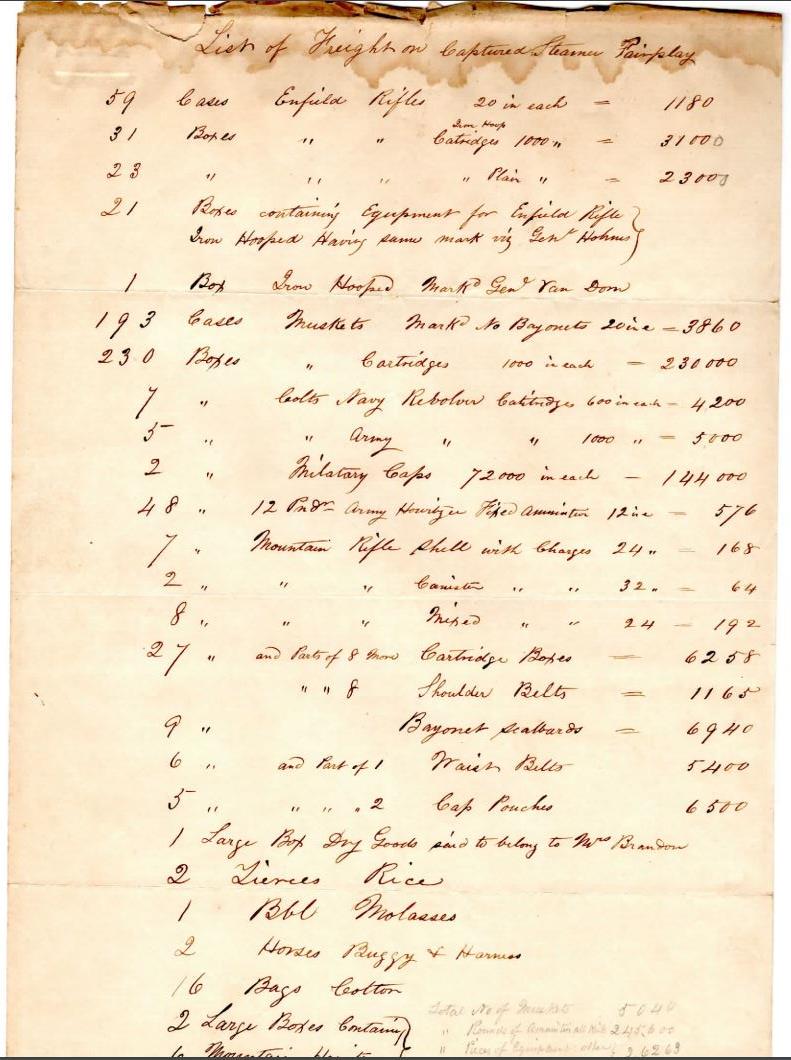 List of Freight on Captured Steamer Fairplay
59 Cases Enfield Rifles 20 in each = 1180
Iron Hoop
31 Boxes " " Catridges 1000 " = 31000
23 " " " " Plain " = 23000
21 Boxes containing Equipment for Enfield Rifle
Iron Hooped Having same mark viz Genl Holmes
1 Box Iron Hooped Markd Genl Van Dorn
193 Cases Muskets Markd No Bayonets 20 in e = 3860
230 Boxes " Cartridges 1000 in each = 230000
7 " Colts Navy Revolver Catridges 600 in each = 4200
5 " " Army " " 1000 " = 5000
2 " Milatary Caps 72000 in each - 144000
48 " 12 Pndr Army Howitzer Fixed 12 in e = 576
7 " Mountain Rifle Shell with Charges 24 " = 168
2 " " " Canister " " 32 " = 64
8 " " " Mixed " " 24 - 192
27 " and Parts of 8 More Cartridge Boxes = 6258
" " 8 Shoulder Belts = 1165
9 " Bayonet Scabbards = 6940
6 " and Part of 1 Waist Belts 5400
5 " " " " 2 Cap Pouches 6500
1 Large Box Dry Goods said to belong to Mrs Brandon
2 Tierces Rice
1 Bbl Molasses
2 Horses Buggy & Harness
16 Bags Cotton
Total No of Muskets 5040
2 Large Boxes Containing
" Rounds of all
" Pieces of Equipment
6 Mountain